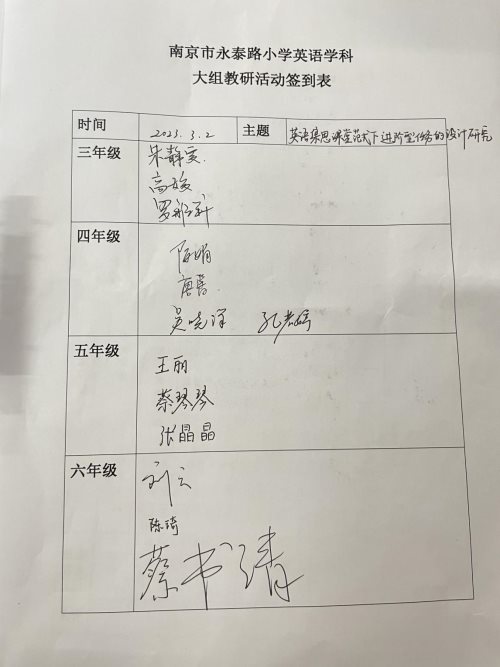 南京市永泰路小学英语学科
大组教研活动签到表
时间 2023.3.2 主题 英语集思课堂范式下进阶型任务的设计研究
三年级 朱静雯
高媛
四年级 陈娟
唐蓉
吴晓洋
五年级 王丽
蔡琴琴
张晶晶
六年级 刘云
陈琦
蔡书清